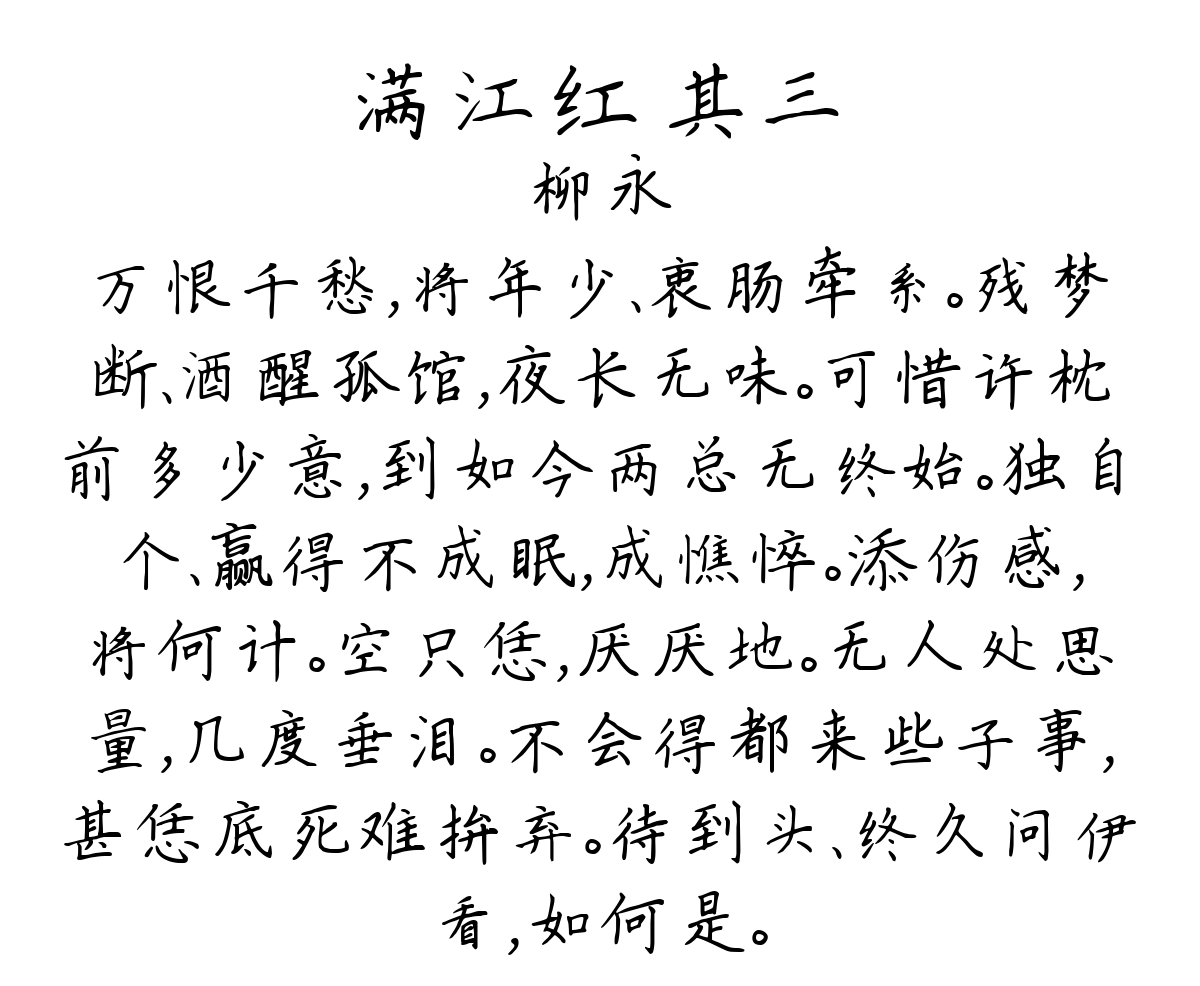 满江红 其三
柳永
万恨千愁,将年少、衷肠牵系。残梦
断、酒醒孤馆,夜长无味。可惜许枕
前多少意,到如今两总无终始。独自
个、赢得不成眠,成憔悴。添伤感,
将何计。空只恁,厌厌地。无人处思
量,几度垂泪。不会得都来些子事,
甚恁底死难拚弃。待到头、终久问伊
看,如何是。